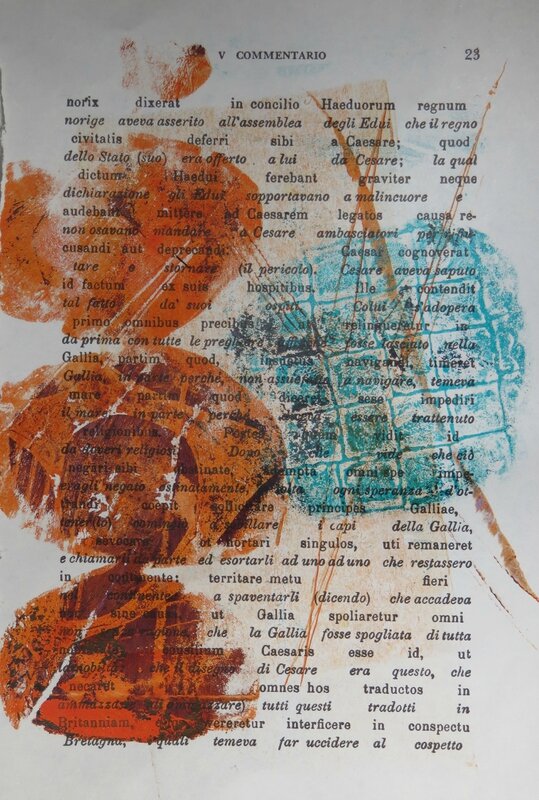 V COMMENTARIO 23
norix dixerat in concilio Haeduorum regnum
norige aveva asserito all'assemblea degli Edui che il regno
civitatis deferri sibi a Caesare; quod
dello Stato (suo) era offerto a lui da Cesare; la qual
dictum Haedui ferebant graviter neque
dichiarazione gli Edui sopportavano a malincuore e
audebant mittere ad Caesarem legatos causa re-
non osavano mandare a Cesare ambasciatori per
cusandi aut deprecandi. Caesar cognoverat
tare e stornare (il pericolo). Cesare aveva saputo
id factum ex suis hospitibus. Ille contendit
tal fatto da' suoi ospiti. Colui s'adopera
primo omnibus precibus ut relinqueretur in
da prima con tutte le preghiere fosse lasciato nella
Gallia, partim quod, navigandi, timeret
Gallia, in parte perchè, non a navigare, temeva
mare partim quod diceret sese impediri
il mare, in parte perchè diceva essere trattenuto
religionibus. vidit id
da doveri religiosi. Dopo che vide che ciò
negari sibi adempta omni spe impe-
eragli negato ostinatamente, tolta ogni speranza d'ot-
trandi coepit sollicitare principes Galliae,
tener(lo) cominciò a i capi della Gallia,
sevocare et hortari singulos, uti remaneret
e chiamarli da parte ed esortarli ad uno ad uno che restassero
in continente: territare metu fieri
nel continente: a spaventarli (dicendo) che accadeva
non sine causa, ut Gallia spoliaretur omni
non ragione, che la Gallia fosse spogliata di tutta
Caesaris esse id, ut
la nobiltà: che il disegno di Cesare era questo, che
necaret omnes hos traductos in
tutti questi tradotti in
Britanniam, vereretur interficere in conspectu
Bretagna, quali temeva far uccidere al cospetto